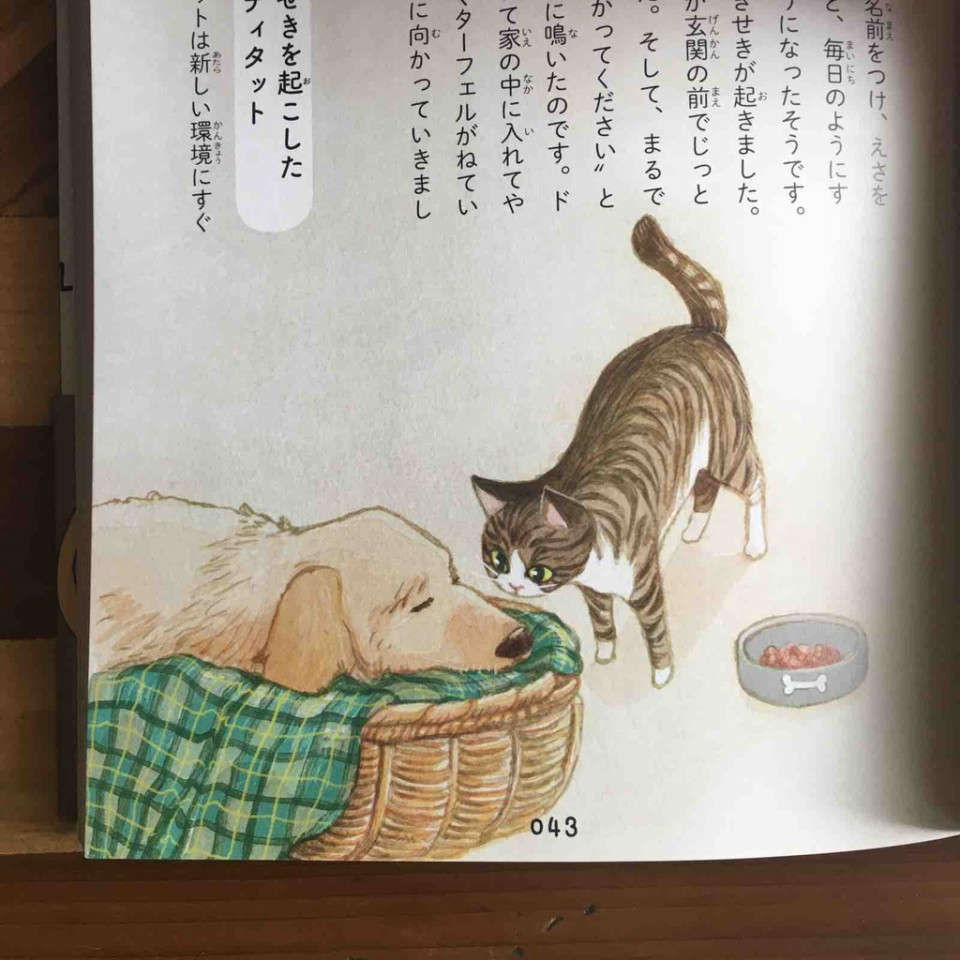 名前をつけ、えさを
と、毎日のようにす
になったそうです。
きせきが起きました。
が玄関の前でじっと
。そして、まるで
かってください〟と
に鳴いたのです。ド
て家の中に入れてや
ターフェルがねてい
に向かっていきまし
せきを起こした
ィタット
ットは新しい環境にすぐ
043